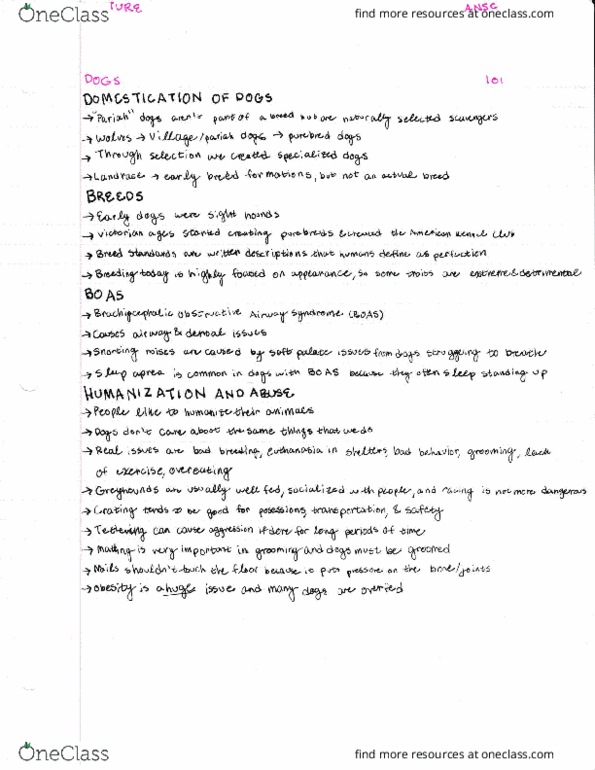 OneClass
TURE
ANSC
find more resources at oneclass.com
DOGS
101
DOMESTICATION OF DOGS
→ "Pariah" dogs aren't part of a breed but are naturally selected scavengers
→ Wolves → Village/pariah dogs → purebred dogs
→ Through selection we created specialized dogs
→ Landrace → early breed formations, but not an actual breed
BREEDS
→ Early dogs were sight hounds
→ Victorian ages started creating purebreds & created the American Kennel Club
→ Breed standards are written descriptions that humans define as perfection
→ Breeding today is highly focused on appearance, so some traits are extreme & detrimental
BOAS
→ Brachycephalic Obstructive Airway Syndrome (BOAS)
→ Causes airway & dental issues
→ Snorting noises are caused by soft palate issues from dogs struggling to breathe
→ Sleep apnea is common in dogs with BOAS because they often sleep standing up
HUMANIZATION AND ABUSE
→ People like to humanize their animals
→ Dogs don't care about the same things that we do
→ Real issues are bad breeding, euthanasia in shelters, bad behavior, grooming, lack
of exercise, overeating
→ Greyhounds are usually well fed, socialized with people, and racing is not more dangerous
→ Crating tends to be good for possessions, transportation, & safety
→ Tethering can cause aggression if done for long periods of time
→ Matting is very important in grooming and dogs must be groomed
→ Nails shouldn't touch the floor because it puts pressure on the bone/joints
→ Obesity is a huge issue and many dogs are overfed
OneClass
find more resources at oneclass.com